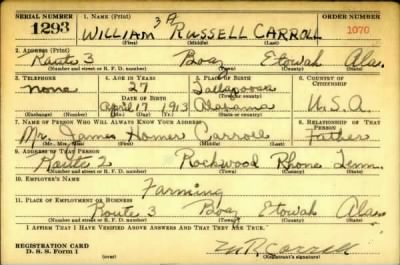 SERIAL NUMBER 1. NAME (Print) ORDER NUMBER
1293 WILLIAM RUSSELL CARROLL 1070
(First) (Middle) (Last)
2. ADDRESS (Print)
Route 3 Boaz Etowah Ala.
(Number and street or R. F. D. number) (Town) (County) (State)
3. TELEPHONE 4. AGE IN YEARS 5. PLACE OF BIRTH 6. COUNTRY OF CITIZENSHIP
none 27 Tallapoosa
DATE OF BIRTH
April 17 1913 Alabama U.S.A.
(Exchange) (Number) (Mo.) (Day) (Yr.) (State or country)
7. NAME OF PERSON WHO WILL ALWAYS KNOW YOUR ADDRESS 8. RELATIONSHIP OF THAT PERSON
Mr. James Homer Carroll Father
(Mr., Mrs., Miss) (First) (Middle) (Last)
9. ADDRESS OF THAT PERSON
Route 2 Rockwood Rhone Tenn.
(Number and street or R. F. D. number) (Town) (County) (State)
10. EMPLOYER'S NAME
Farming
11. PLACE OF EMPLOYMENT OR BUSINESS
Route 3 Boaz Etowah Ala.
(Number and street or R. F. D. number) (Town) (County) (State)
I AFFIRM THAT I HAVE VERIFIED ABOVE ANSWERS AND THAT THEY ARE TRUE.
REGISTRATION CARD
D. S. S. Form 1
W R Carroll
(Registrant's signature)